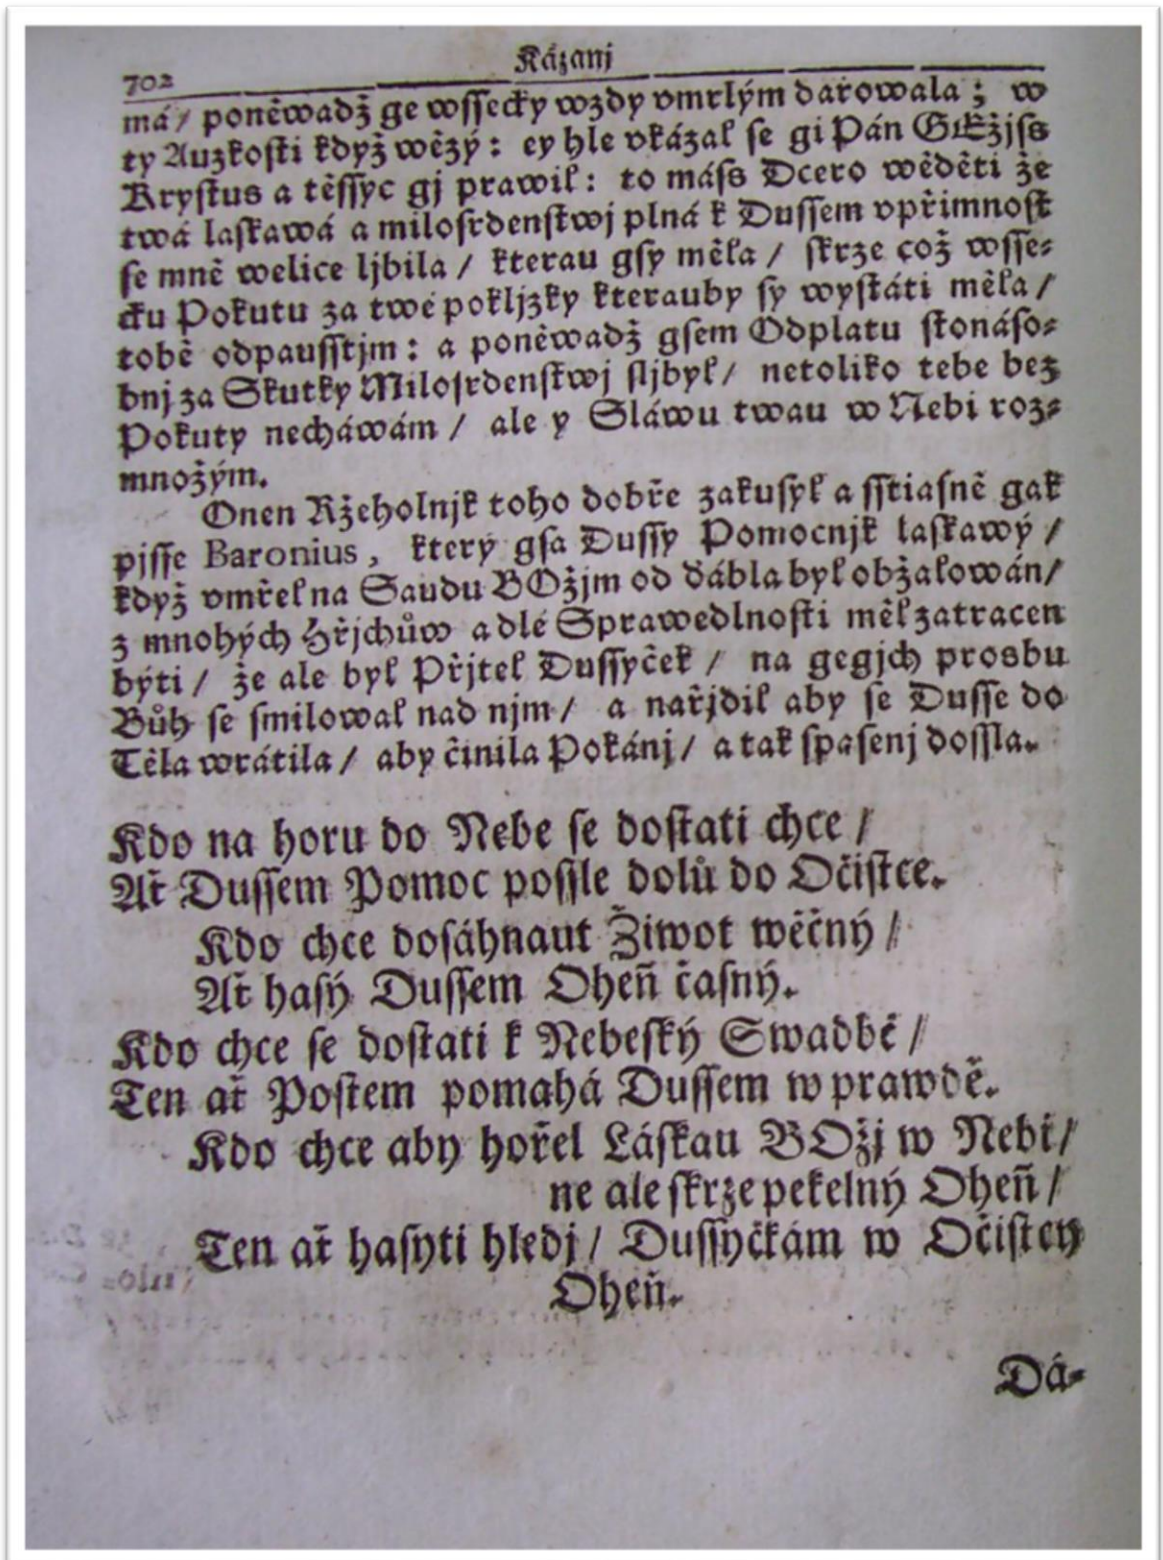 702 Kázanj
má / poněwadž ge wssecky wzdy vmrlým darowala ; w
ty Auzkosti když wězý : ey hle vkázal se gi Pán GEžjss
Krystus a těssyc gj prawil : to máss Dcero wěděti že
twá laskawá a milosrdenstwj plná k Dussem vpřimnost
se mně welice ljbila / kterau gsy měla / skrze což wsse-
cku Pokutu za twé pokljzky kterauby sy wystáti měla /
tobě odpausstjm : a poněwadž gsem Odplatu stonáso-
bnj za Skutky Milosrdenstwj sljbyl / netoliko tebe bez
Pokuty necháwám / ale y Sláwu twau w Nebi roz-
množým.
Onen Ržeholnjk toho dobře zakusyl a sstiasně gak
pjsse Baronius, který gsa Dussy Pomocnjk laskawý /
když vmřel na Saudu BOžjm od ďábla byl obžalowán /
z mnohých Hřjchůw a dlé Sprawedlnosti měl zatracen
býti / že ale byl Přjtel Dussyček / na gegjch prosbu
Bůh se smilowal nad njm / a nařjdil aby se Dusse do
Těla wrátila / aby činila Pokánj / a tak spasenj dossla.
Kdo na horu do Nebe se dostati chce /
Ať Dussem Pomoc possle dolů do Očistce.
Kdo chce dosáhnaut Žiwot wěčný /
Ať hasý Dussem Oheň časný.
Kdo chce se dostati k Nebeský Swadbě /
Ten ať Postem pomahá Dussem w prawdě.
Kdo chce aby hořel Láskau BOžj w Nebi /
ne ale skrze pekelný Oheň /
Ten ať hasyti hledj / Dussyčkám w Očistcy
Oheň.
Dá-